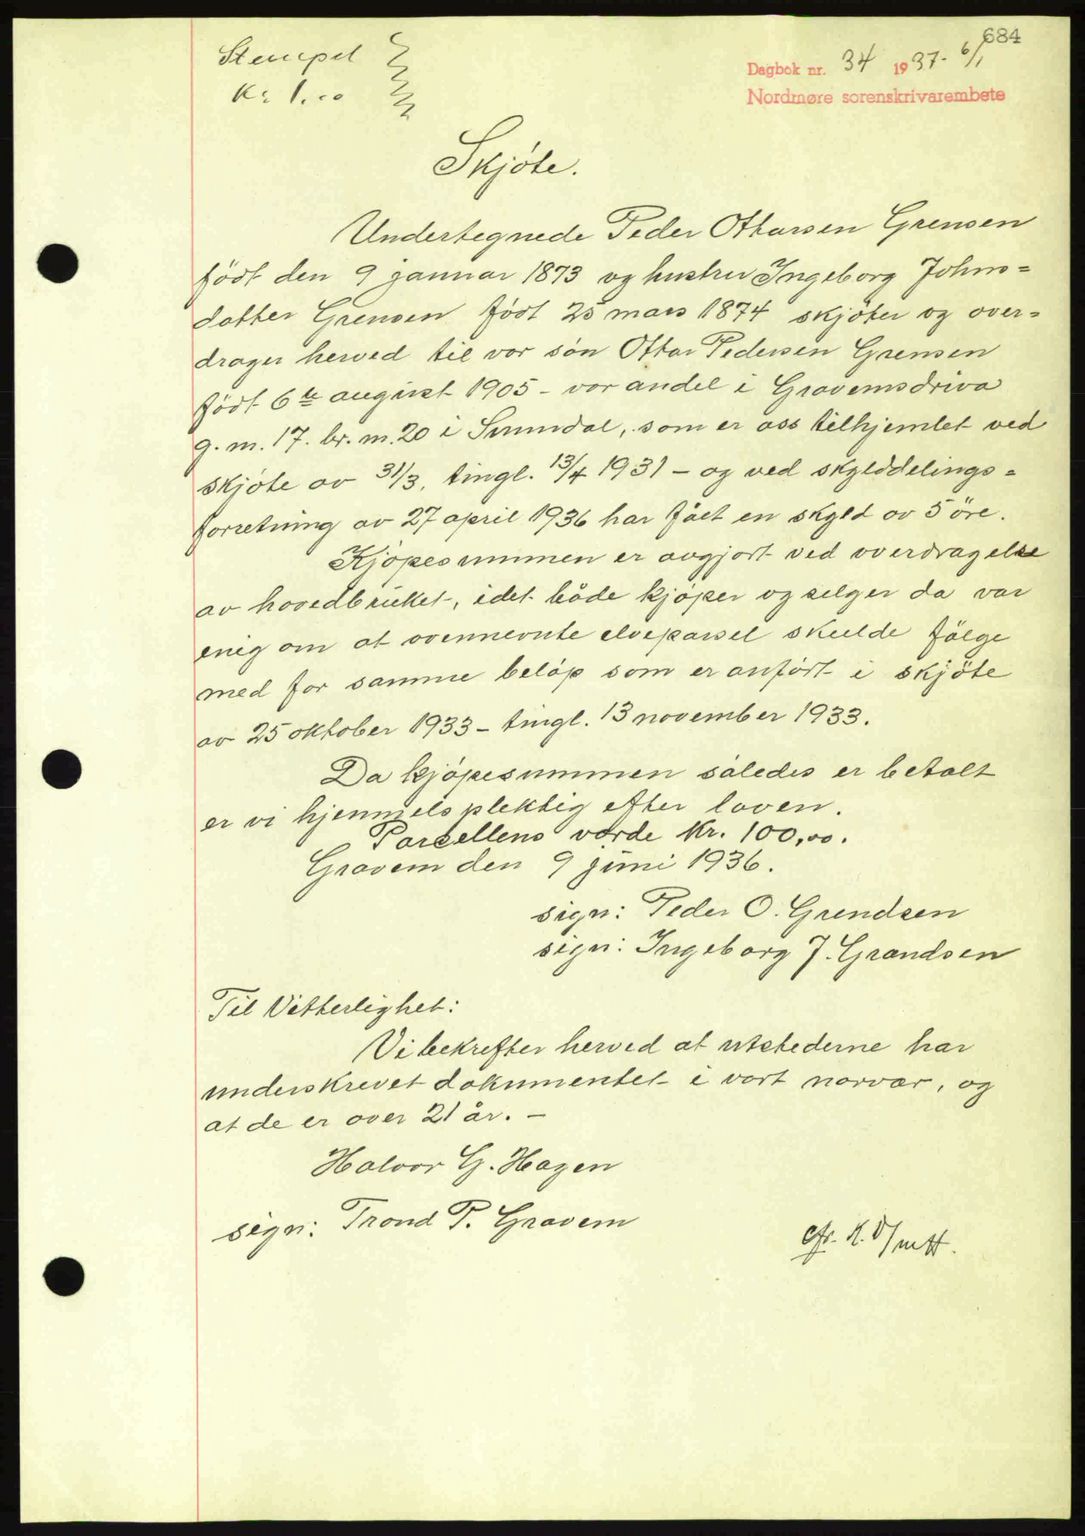 684
Stempel
Kr 1.00
Dagbok nr. 34 1937 - 6/1
Nordmøre sorenskrivarembete
Skjöte.
Undertegnede Peder Ottarsen Grensen
født den 9 januar 1873 og hustru Ingeborg Johns=
datter Grensen født 25 mars 1874 skjöter og over=
drager herved til vor sön Ottar Pedersen Grensen
født 6te august 1905 - vor andel i Gravemsdriva
g. m. 17. br. m. 20 i Sunndal, som er oss tilhjemlet ved
skjöte av 31/3, tingl. 13/4 1931 - og ved skylddelings=
forretning av 27 april 1936 har fået en skyld av 5 öre.
Kjöpesummen er avgjort ved overdragelse
av hovedbruket, idet både kjöper og selger da var
enig om at ovennevnte elveparsel skulde fölge
med for samme belöp som er anfört i skjöte
av 25 oktober 1933 - tingl. 13 november 1933.
Da kjöpesummen således er betalt
er vi hjemmelsplektig efter loven.
Parcellens værde Kr. 100,00.
Gravem den 9 juni 1936.
sign: Peder O. Grendsen
sign: Ingeborg J. Grandsen
Til Vitterlighet:
Vi bekrefter herved at utstederne har
underskrevet dokumentet i vort nærvær, og
at de er over 21 år. -
Halvor G. Hagen
sign: Trond P. Gravem